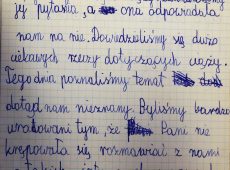 jej pytania, a ona odpowiadała
nam na nie. Dowiedzieliśmy się dużo
ciekawych rzeczy dotyczących ciąży.
Tego dnia poznaliśmy temat
dotąd nam nieznany. Byliśmy bardzo
uradowani tym, że Pani nie
krępowała się rozmawiać z nami